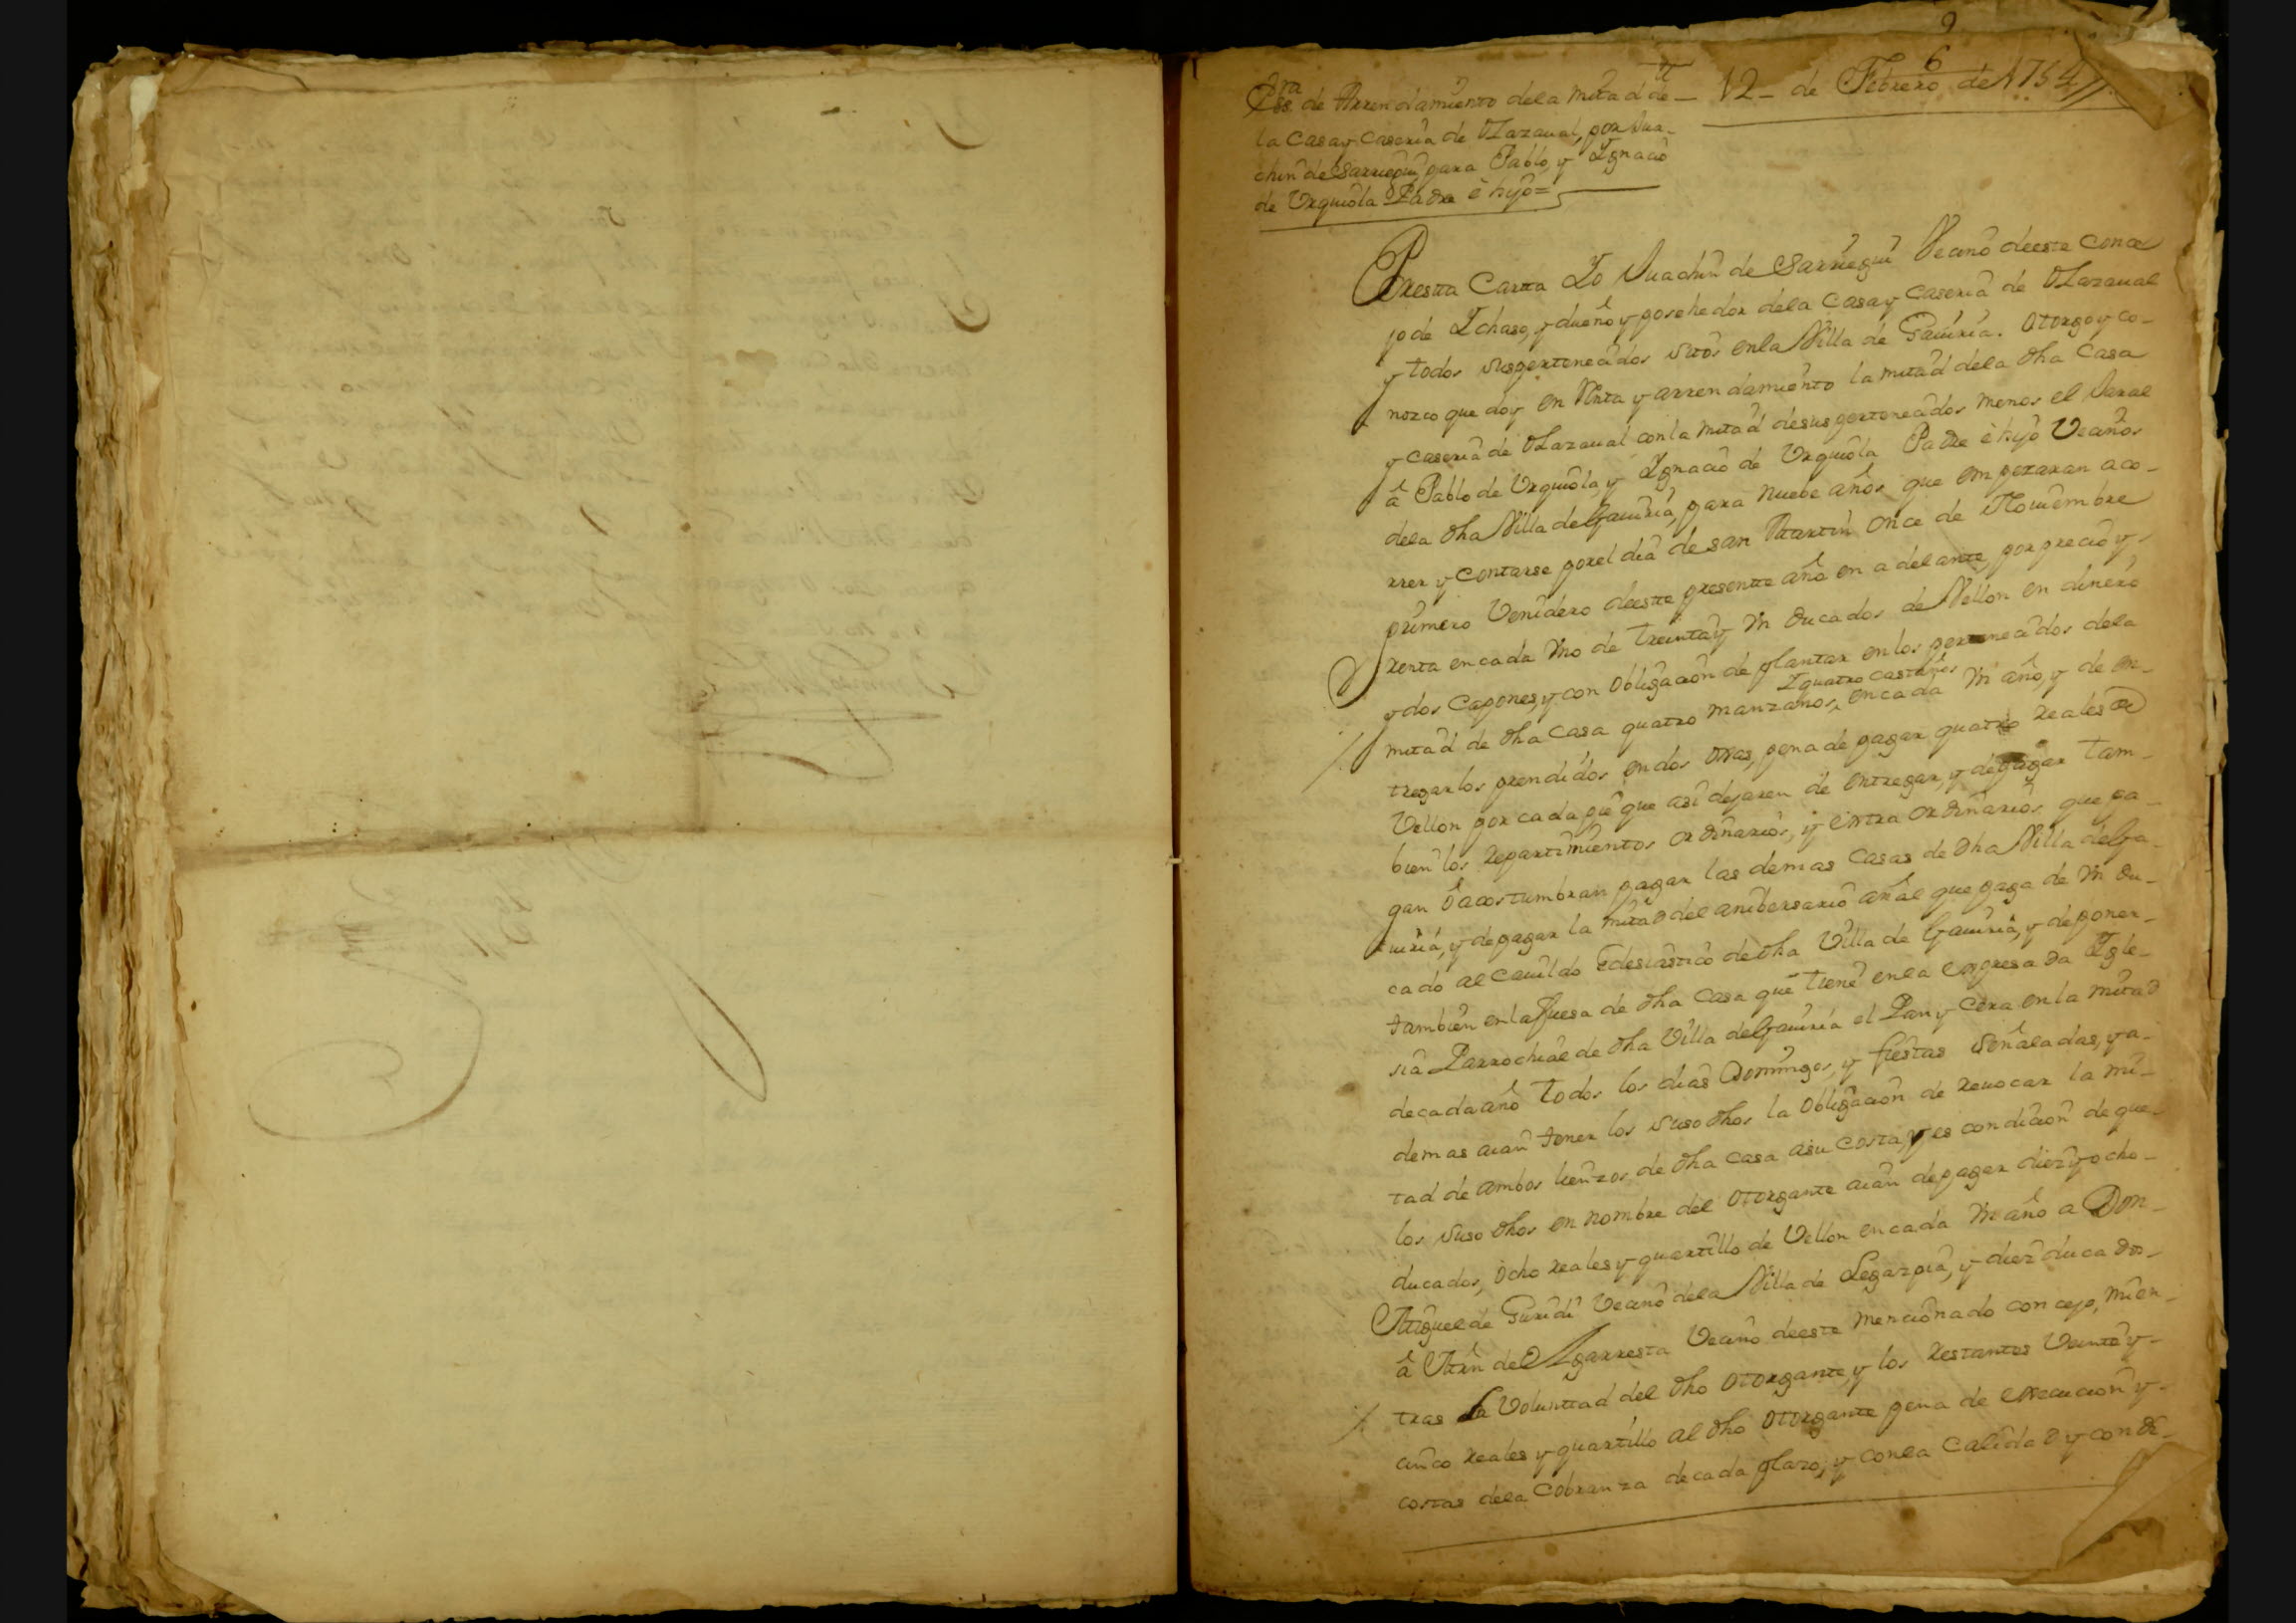 9
6
12 - de Febrero de 1754
Essra de Arrendamiento dela mitad de
la Casa y Caseria de Olazaual, por Jua-
chin de Sarriegui para Pablo, y Ygnacio
de Urquiola Padre è hijo =
Por esta Carta Yo Juachin de Sarriegui Vecino deeste conce
jo de Ychaso, y dueño y posehedor dela Casa y Caseria de Olazaual
y todos sus pertenecidos sitos en la Villa de Gauiria. Otorgo y co-
nozco que doy en Renta y arrendamiento la mitad dela dha Casa
y caseria de Olazaual con la mitad desus pertenecidos menos el Jaral
â Pablo de Urquiola, y Ygnacio de Urquiola Padre è hijo Vecinos
dela dha Villa de Gauiria, para nuebe años que empezaran aco-
rrer y Contarse por el dia de san Martin Once de Nouiembre
primero Venidero deeste presente año en adelante, por precio y
renta en cada Vno de treinta y Vn Ducados de Vellon en dinero
y dos Capones, y con obligacion de plantar en los pertenecidos dela
Y quatro castaños
mitad de dha Casa quatro manzanos, en cada Vn año, y de en-
tregarlos prendidos en dos ojas, pena de pagar quatro Reales de
Vellon por cada pie que asi dejaren de entregar, y de pagar tam-
bien los Repartimientos ordinarios, y extra ordinarios que pa-
gan ô acostumbran pagar las demas Casas de dha Villa de Ga-
uiria, y de pagar la mitad del anibersario añal que paga de Vn du-
cado al Cauildo Eclesiastico de dha Villa de Gauiria, y de poner-
tambien en la fuesa de dha Casa que tiene en la expresada Ygle-
sia Parrochial de dha Villa de Gauiria el Pan y Cera en la mitad
de cada año todos los dias Domingos, y fiestas Señaladas, y a-
demas aian tener los suso dhos la obligacion de Reuocar la mi-
tad de ambos lienzos de dha casa asu costa, y es condicion de que
los suso dhos en nombre del Otorgante aian de pagar diez y ocho-
ducados, ocho reales y quartillo de Vellon en cada Vn año a Don
Miguel de Guridi Vecino dela Villa de Legazpia, y diez ducados
â Mrn de Ygarresta Vecino deeste mencionado concejo, mien-
tras la Voluntad del dho Otorgante, y los Restantes Veinte y
cinco Reales y quartillo al dho Otorgante pena de execucion y
costas dela Cobranza de cada plazo, y con la Calidad y condi-